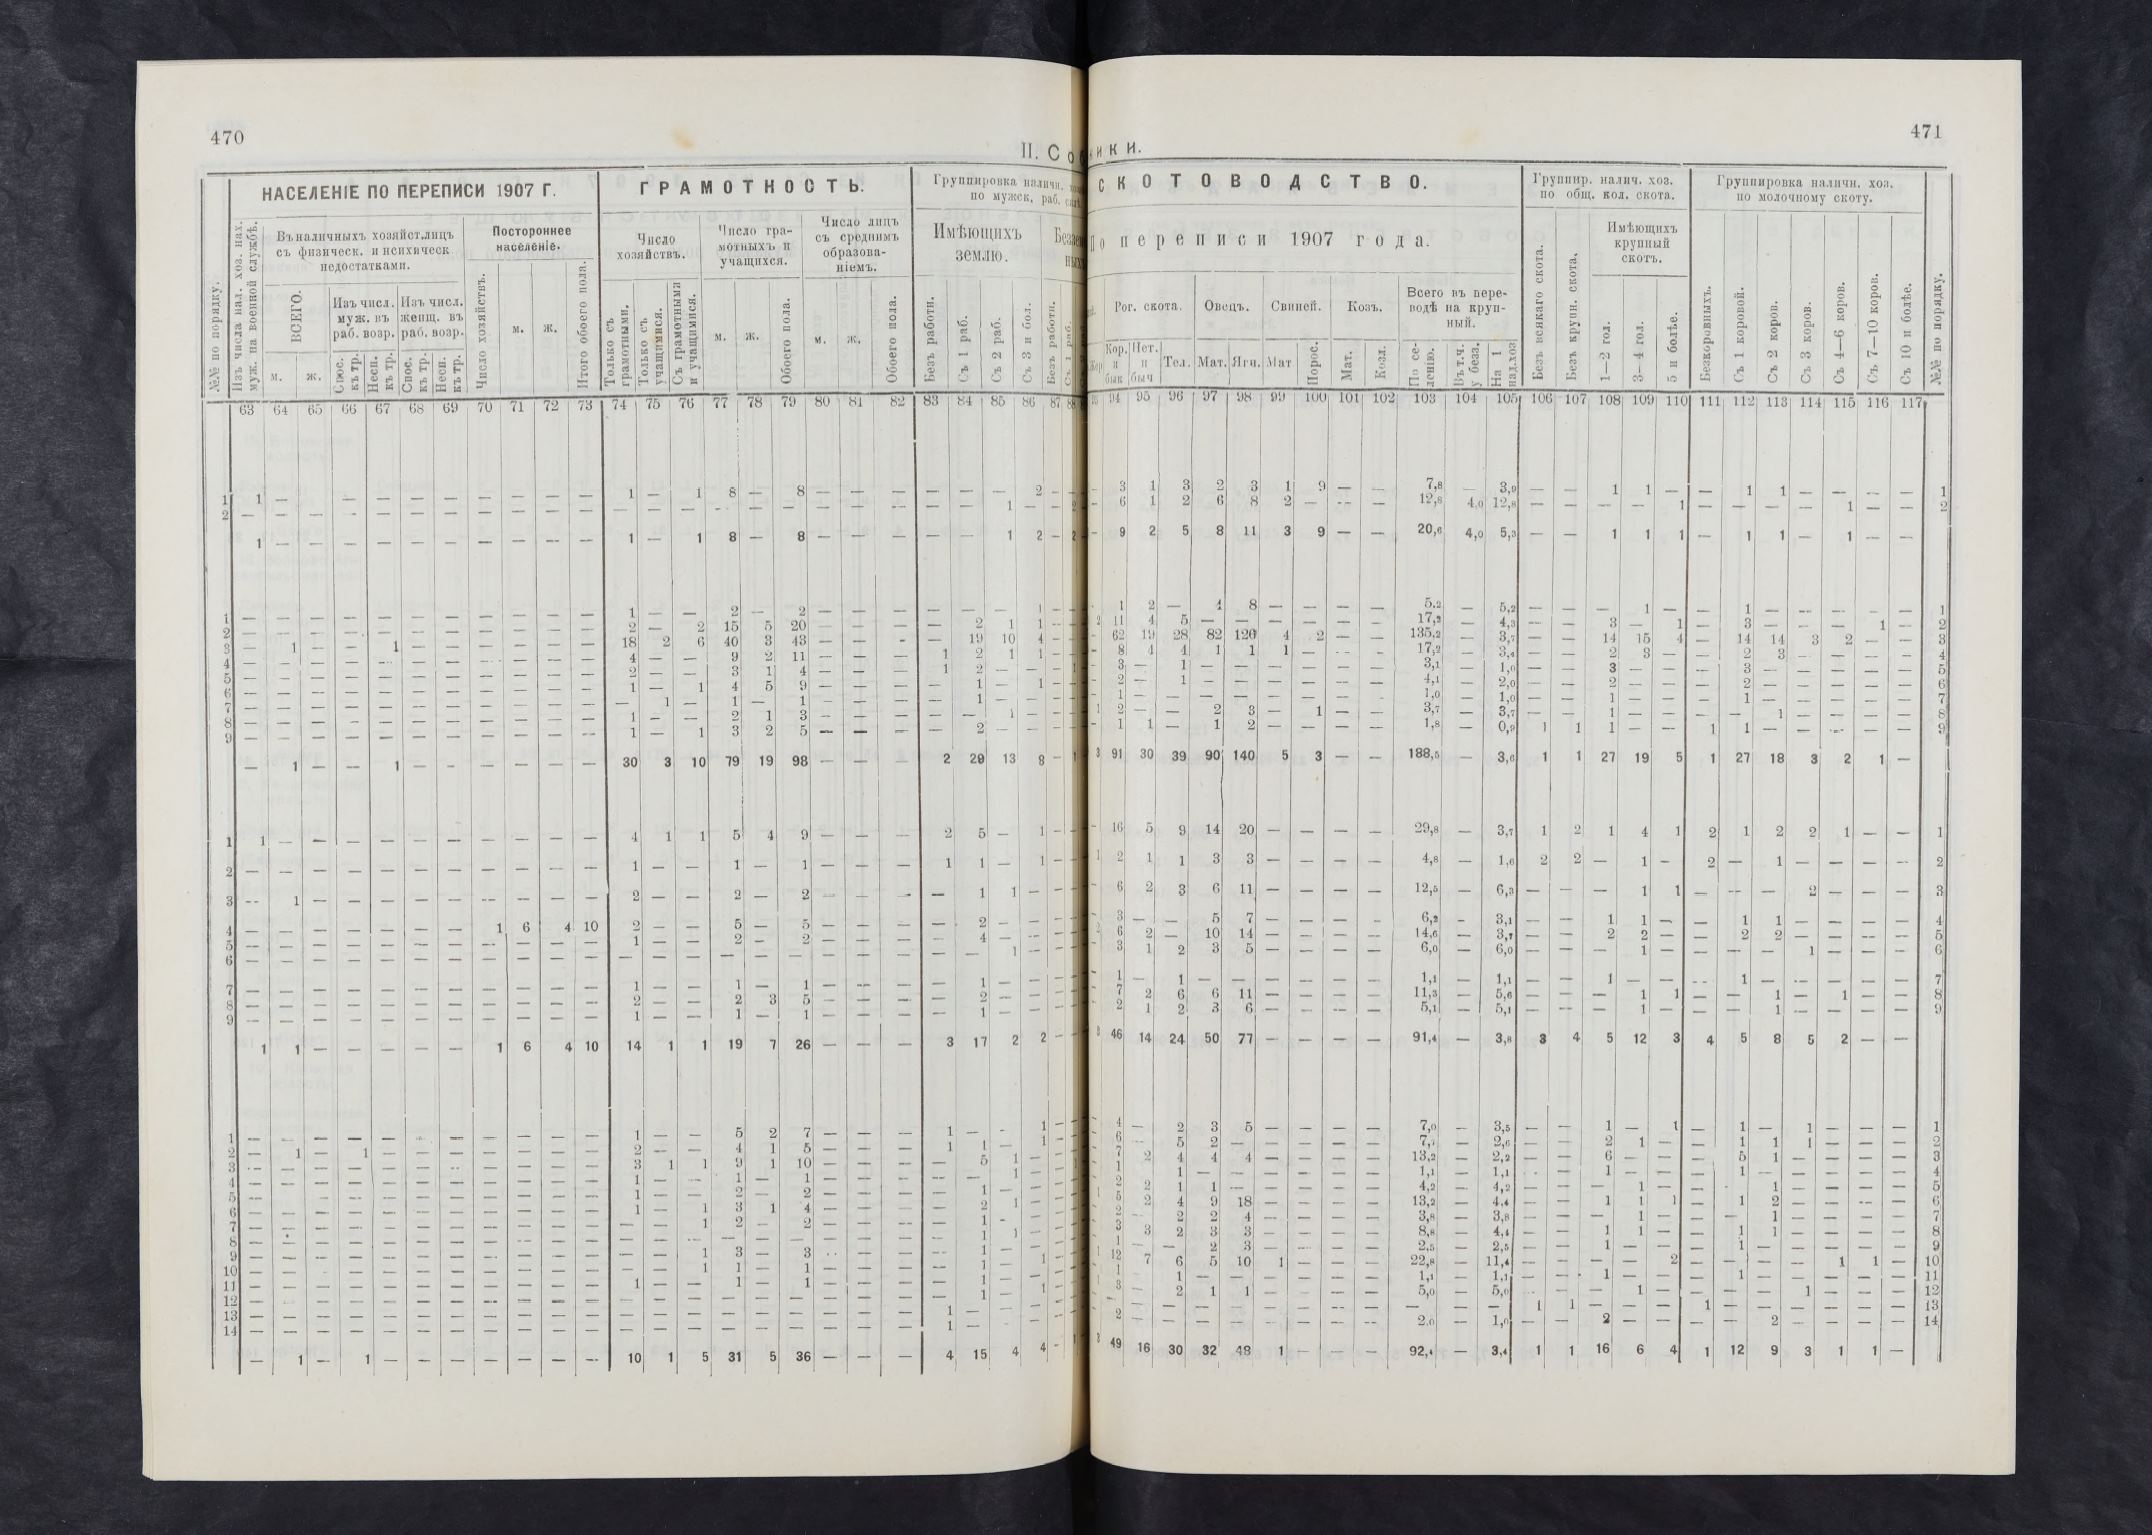 470
II. Со
НАСЕЛЕНІЕ ПО ПЕРЕПИСИ 1907 Г.
ГРАМОТНОСТЬ.
Группировка наличн. хоз
по мужск. раб. силѣ.
№№ по порядку.
Изъ числа нал. хоз. нах.
муж. на военной службѣ.
Въ наличныхъ хозяйст. лицъ
съ физическ. и психическ
недостатками.
Постороннее
населеніе.
Число
хозяйствъ.
Число гра-
мотныхъ и
учащихся.
Число лицъ
съ среднимъ
образова-
ніемъ.
Имѣющихъ
землю.
ВСЕГО.
Изъ числ.
муж. въ
раб. возр.
Изъ числ.
женщ. въ
раб. возр.
м. ж.
Спос. къ тр.
Несп. къ тр.
Спос. къ тр.
Несп. къ тр.
Число хозяйствъ.
м. ж.
Итого обоего пола.
Только съ грамотными.
Только съ учащимися.
Съ грамотными и учащимися.
м. ж.
Обоего пола.
м. ж.
Обоего пола.
Безъ работн.
Съ 1 раб.
Съ 2 раб.
Съ 3 и бол.
Безъ работн.
Съ 1 раб.
63 64 65 66 67 68 69 70 71 72 73 74 75 76 77 78 79 80 81 82 83 84 85 86 87 88
1 1 — — — — — — — — — 1 — 1 8 — 8 — — — — — — 2 —
2 — — — — — — — — — — — — — — — — — — — — — — — 1 — — 2
1 — — — — — — — — — — 1 — 1 8 — 8 — — — — — 1 2 — 2
1 — — — — — — — — — — — 1 — — 2 — 2 — — — — — — 1 —
2 — — — — — — — — — — — 2 — 2 15 5 20 — — — — 2 1 1 —
3 — 1 — — 1 — — — — — — 18 2 6 40 3 43 — — - — 19 10 4 —
4 — — — — — — — — — — — 4 — — 9 2 11 — — — 1 2 1 1 —
5 — — — — — — — — — — — 2 — — 3 1 4 — — — 1 2 — — — 1
6 — — — — — — — — — — — 1 — 1 4 5 9 — — — — 1 — 1 —
7 — — — — — — — — — — — — 1 — 1 — 1 — — — — 1 — — —
8 — — — — — — — — — — — 1 — — 2 1 3 — — — — — 1 — —
9 — — — — — — — — — — — 1 — 1 3 2 5 — — — — 2 — — —
— 1 — — 1 — — — — — — 30 3 10 79 19 98 — — — 2 29 13 8 — 1
1 1 — — — — — — — — — — 4 1 1 5 4 9 — — — 2 5 — 1 —
2 — — — — — — — — — — — 1 — — 1 — 1 — — — 1 1 — 1 —
3 — 1 — — — — — — — — — 2 — — 2 — 2 — — — — 1 1 — —
4 — — — — — — — 1 6 4 10 2 — — 5 — 5 — — — — 2 — — —
5 — — — — — — — — — — — 1 — — 2 — 2 — — — — 4 — — —
6 — — — — — — — — — — — — — — — — — — — — — — 1 — —
7 — — — — — — — — — — — 1 — — 1 — 1 — — — — 1 — — —
8 — — — — — — — — — — — 2 — — 2 3 5 — — — — 2 — — —
9 — — — — — — — — — — — 1 — — 1 — 1 — — — — 1 — — —
1 1 — — — — — 1 6 4 10 14 1 1 19 7 26 — — — 3 17 2 2 —
1 — — — — — — — — — — — 1 — — 5 2 7 — — — 1 — — 1 —
2 — 1 — 1 — — — — — — — 2 — — 4 1 5 — — — 1 1 — 1 —
3 — — — — — — — — — — — 3 1 1 9 1 10 — — — — 5 1 — — 1
4 — — — — — — — — — — — 1 — — 1 — 1 — — — — — 1 — —
5 — — — — — — — — — — — 1 — — 2 — 2 — — — — 1 — — —
6 — — — — — — — — — — — 1 — 1 3 1 4 — — — — 2 1 — —
7 — — — — — — — — — — — — — 1 2 — 2 — — — — 1 — — —
8 — — — — — — — — — — — — — — — — — — — — — 1 1 — —
9 — — — — — — — — — — — — — 1 3 — 3 — — — — 1 — — —
10 — — — — — — — — — — — — — 1 1 — 1 — — — — 1 — 1 —
11 — — — — — — — — — — — 1 — — 1 — 1 — — — — 1 — — —
12 — — — — — — — — — — — — — — — — — — — — — 1 — 1 —
13 — — — — — — — — — — — — — — — — — — — — 1 — — — —
14 — — — — — — — — — — — — — — — — — — — — 1 — — — —
— 1 — 1 — — — — — — — 10 1 5 31 5 36 — — — 4 15 4 4 — 1
471
ники.
СКОТОВОДСТВО.
Группир. налич. хоз.
по общ. кол. скота.
Группировка наличн. хоз.
по молочному скоту.
По переписи 1907 года.
Безъ всякаго скота.
Безъ крупн. скота.
Имѣющихъ
крупный
скотъ.
Рог. скота. Овецъ. Свиней. Козъ.
Всего въ пере-
водѣ на круп-
ный.
Кор. и бык
Нет. и быч
Тел. Мат. Ягн. Мат Порос. Мат. Козл.
По се-
ленію.
Въ т.ч. у безз.
На 1 над.хоз
1—2 гол.
3—4 гол.
5 и болѣе.
Безкоровныхъ.
Съ 1 коровой.
Съ 2 коров.
Съ 3 коров.
Съ 4—6 коров.
Съ 7—10 коров.
Съ 10 и болѣе.
№№ по порядку.
94 95 96 97 98 99 100 101 102 103 104 105 106 107 108 109 110 111 112 113 114 115 116 117
3 1 3 2 3 1 9 — — 7,8 — 3,9 — — 1 1 — — 1 1 — — — — 1
6 1 2 6 8 2 — — — 12,8 4,0 12,8 — — — — 1 — — — — 1 — — 2
9 2 5 8 11 3 9 — — 20,6 4,0 5,3 — — 1 1 1 — 1 1 — 1 — —
1 2 — 4 8 — — — — 5.2 — 5,2 — — — 1 — — 1 — — — — — 1
2 11 4 5 — — — — — — 17,2 — 4,3 — — 3 — 1 — 3 — — — 1 — 2
62 19 28 82 120 4 2 — — 135,2 — 3,7 — — 14 15 4 — 14 14 3 2 — — 3
8 4 4 1 1 1 — — — 17,2 — 3,4 — — 2 3 — — 2 3 — — — — 4
3 — 1 — — — — — — 3,1 — 1,0 — — 3 — — — 3 — — — — — 5
2 — 1 — — — — — — 4,1 — 2,0 — — 2 — — — 2 — — — — — 6
1 — — — — — — — — 1,0 — 1,0 — — 1 — — — 1 — — — — — 7
1 2 — — 2 3 — 1 — — 3,7 — 3,7 — — 1 — — — — 1 — — — — 8
1 1 — 1 2 — — — — 1,8 — 0,9 1 1 1 — — 1 1 — — — — — 9
3 91 30 39 90 140 5 3 — — 188,5 — 3,6 1 1 27 19 5 1 27 18 3 2 1 —
16 5 9 14 20 — — — — 29,8 — 3,7 1 2 1 4 1 2 1 2 2 1 — — 1
1 2 1 1 3 3 — — — — 4,8 — 1,6 2 2 — 1 — 2 — 1 — — — — 2
6 2 3 6 11 — — — — 12,5 — 6,3 — — — 1 1 — — — 2 — — — 3
3 — — 5 7 — — — — 6,2 — 3,1 — — 1 1 — — 1 1 — — — — 4
2 6 2 — 10 14 — — — — 14,6 — 3,7 — — 2 2 — — 2 2 — — — — 5
3 1 2 3 5 — — — — 6,0 — 6,0 — — — 1 — — — — 1 — — — 6
1 — 1 — — — — — — 1,1 — 1,1 — — 1 — — — 1 — — — — — 7
7 2 6 6 11 — — — — 11,3 — 5,6 — — — 1 1 — — 1 — 1 — — 8
2 1 2 3 6 — — — — 5,1 — 5,1 — — — 1 — — — 1 — — — — 9
3 46 14 24 50 77 — — — — 91,4 — 3,8 3 4 5 12 3 4 5 8 5 2 — —
4 — 2 3 5 — — — — 7,0 — 3,5 — — 1 — 1 — 1 — 1 — — — 1
6 — 5 2 — — — — — — 2,6 — — 2 1 — — 1 1 1 — — — 2
7 2 4 4 4 — — — — 13,2 — 2,2 — — 6 — — — 5 1 — — — — 3
1 — 1 — — — — — — 1,1 — 1,1 — — 1 — — — 1 — — — — — 4
2 2 1 1 — — — — — 4,2 — 4,2 — — — 1 — — — 1 — — — — 5
1 5 2 4 9 18 — — — — 13,2 — 4,4 — — 1 1 1 — 1 2 — — — — 6
2 — 2 2 4 — — — — 3,8 — 3,8 — — — 1 — — — 1 — — — — 7
3 3 2 3 3 — — — — 8,8 — 4,4 — — 1 1 — — 1 1 — — — — 8
1 — — 2 3 — — — — 2,5 — 2,5 — — 1 — — — 1 — — — — — 9
1 12 7 6 5 10 1 — — — 22,8 — 11,4 — — — — 2 — — — — 1 1 — 10
1 — 1 — — — — — — 1,1 — 1,1 — — 1 — — — 1 — — — — — 11
1 3 — 2 1 1 — — — — 5,0 — 5,0 — — — 1 — — — — 1 — — — 12
— — — — — — — — — — — — 1 1 — — — 1 — — — — — — 13
2 — — — — — — — — 2.0 — 1,0 — — 2 — — — — 2 — — — — 14
3 49 16 30 32 48 1 — — — 92,4 — 3,4 1 1 16 6 4 1 12 9 3 1 1 —